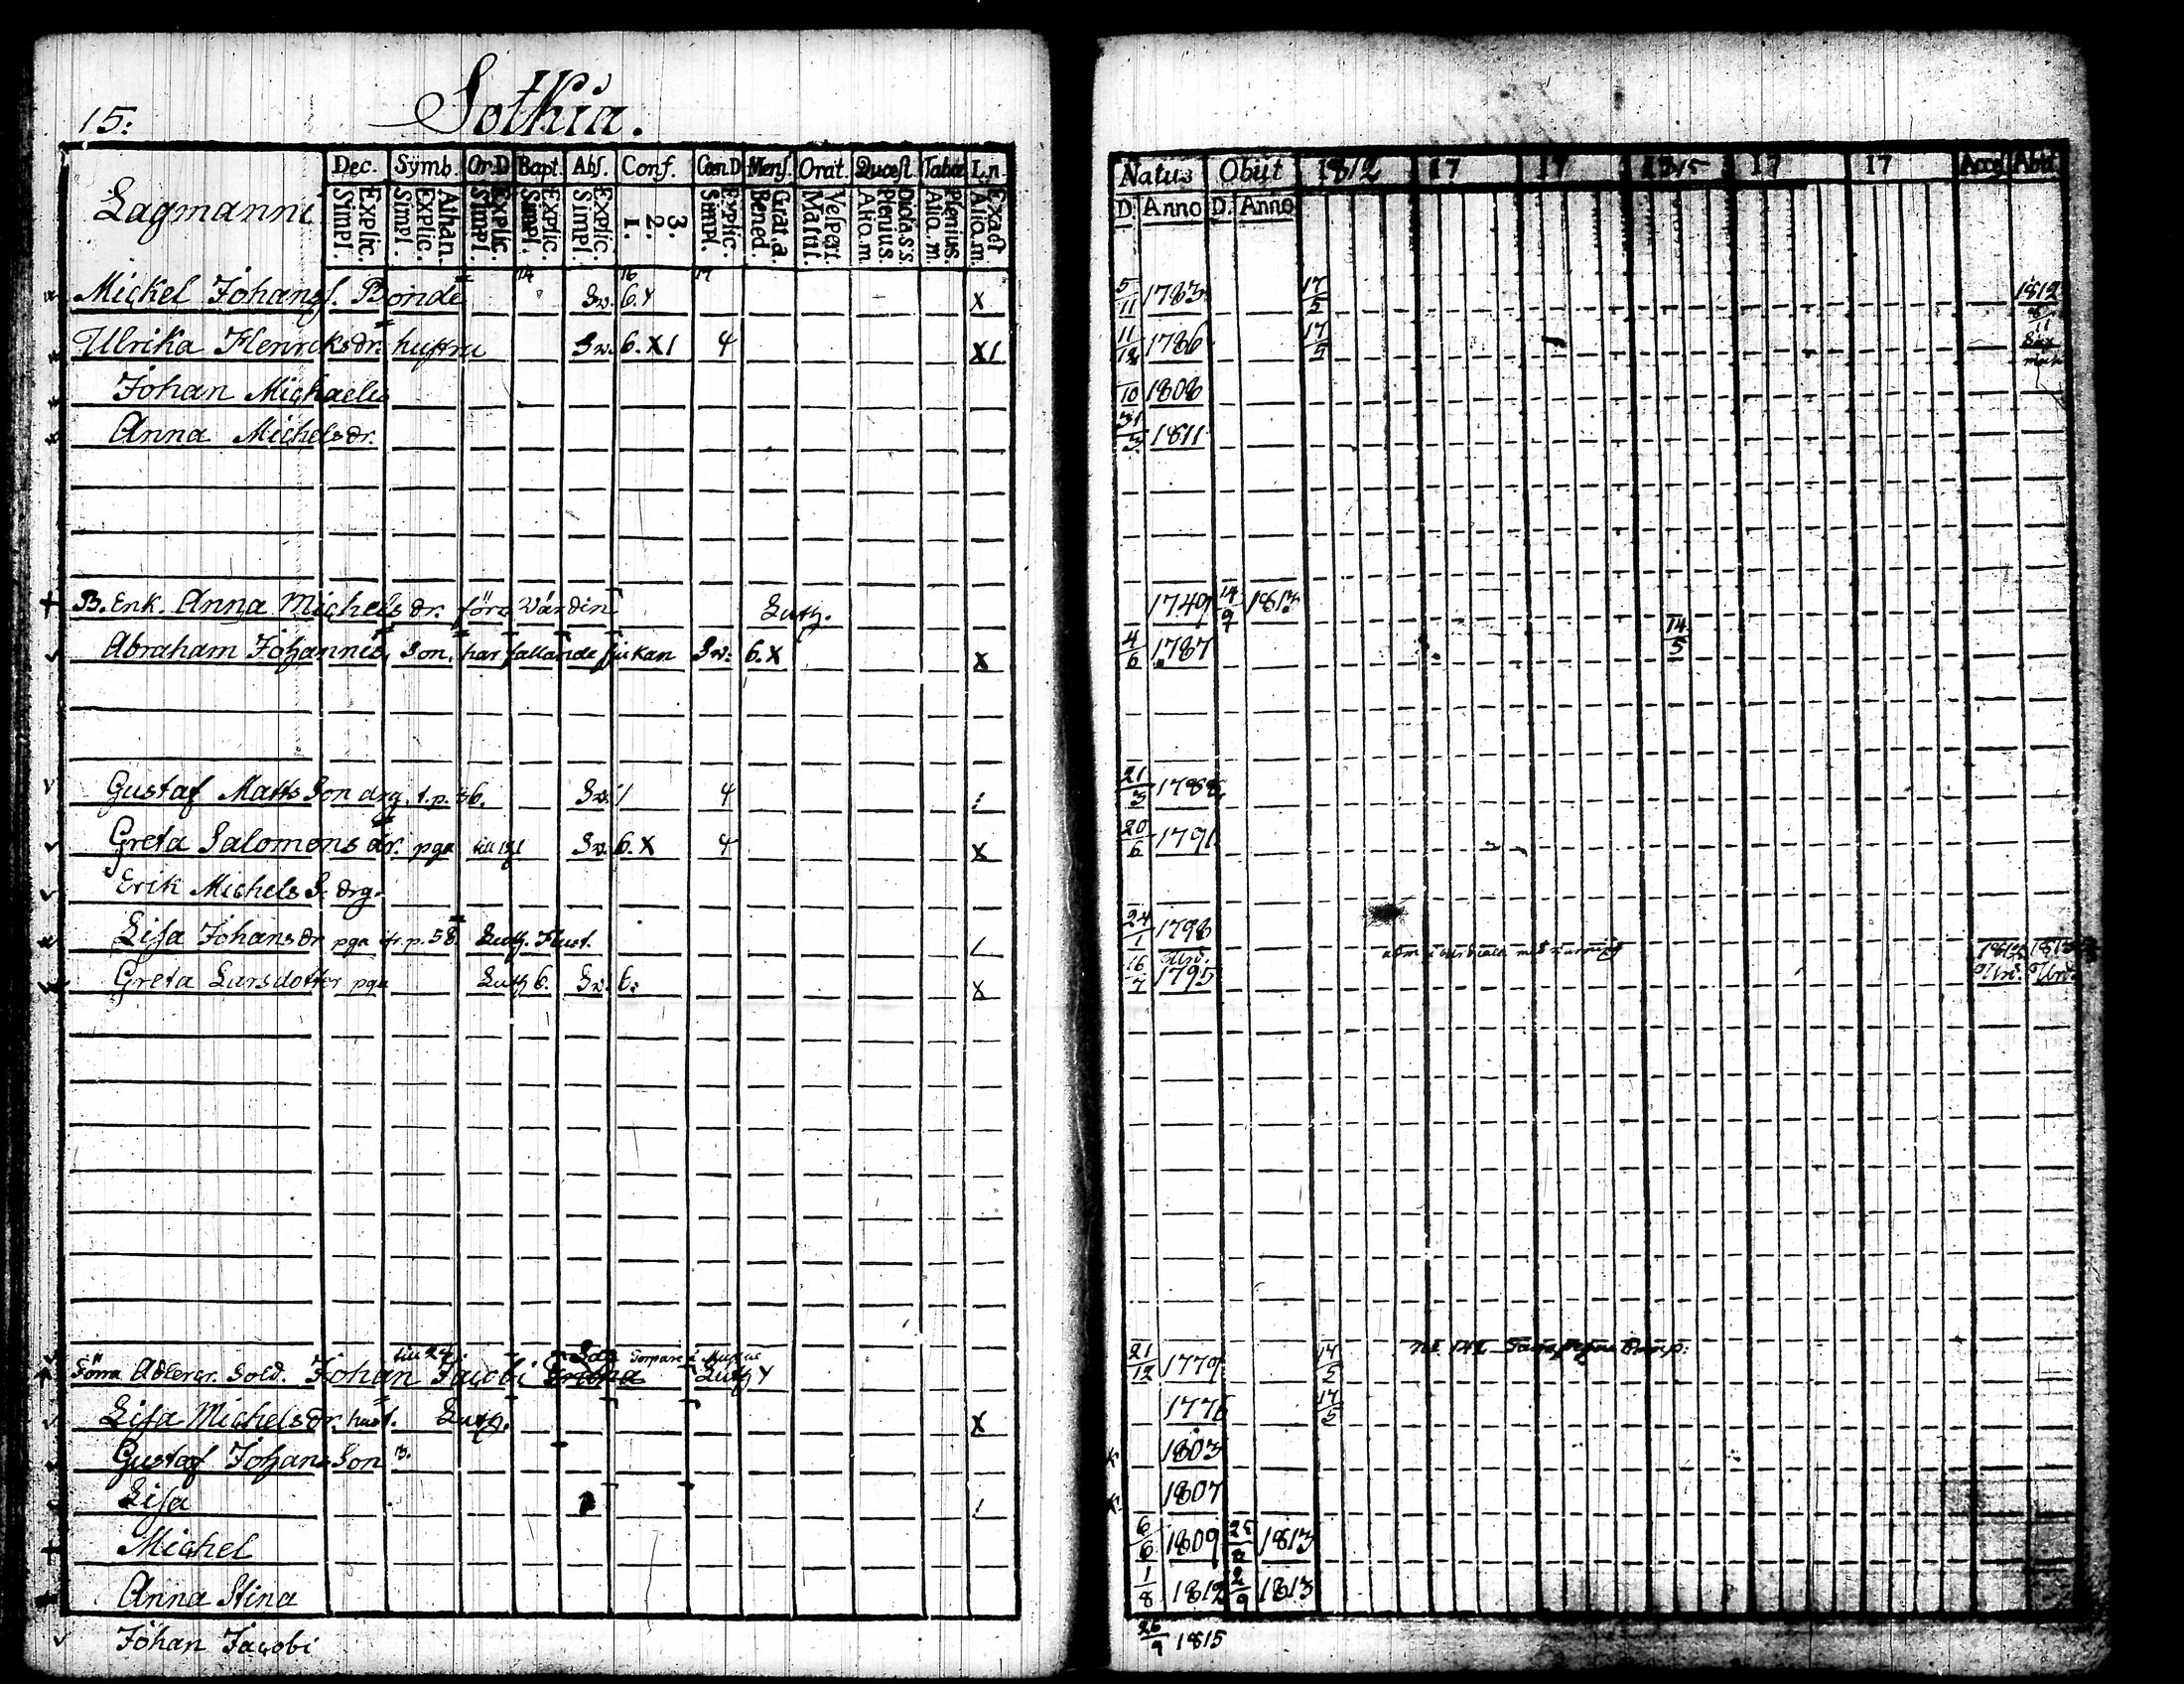 15:
Sotkia.
Lagmanni
Dec. Symb. Or.D Bapt. Abs. Conf. CœnD Mens. Orat. Quæst Tabæ L.n.
Explic. Simpl. Athan. Explic. Simpl. Explic. Simpl. Explic. Simpl. Explic. Simpl. 3. 2. 1. Explic. Simpl. Grat. a. Bened. Vespert. Matut. Dicta s.s. Plenius Alio.m Plenius. Alio.m Exact Alio.m.
Natus Obiit 1812 17 17 1815 17 17 Acceſ Abit
D. Anno D. Anno
Mickel Johansſ. Bonde Sv. 6. x 5/11 1783 17/5 1812
Ulrika Henriksdr. huſtru Sv. 6. X 1 4 X1 11/12 1786 17/5
Johan Michaelis 10 1808
Anna Michelsdr. 31/3 1811
B. Enk. Anna Michelsdr. förra Värdin Luth. 1749 14/9 1813
Abraham Johannis, Son, har fallande sjukan Sv. 6. X x 4/6 1787 14/5
Gustaf Matts Son drg. t.p. 36. Sv. 1 4 21/3 1788
Greta Salomons dr. pga Sv. 6. X 4 X 20/6 1791
Erik Michels S. drg.
Lisa Johansdr pga fr. p. 58. Luth. Hust. 24/1 1793
Greta Larsdotter pga Luth 6. Sv. 6. X 16/7 1795
Förra Abkercr. Sold. Johan Jacobi Luth 21/12 1779 14/5
Lisa Michelsdr. hust. Luth. X 1776 14/5
Gustaf Johans Son 1803
Lisa 1807
Michel 6/6 1809 25/8 1813
Anna Stina 1/8 1812 2/9 1813
Johan Jacobi 26/9 1815